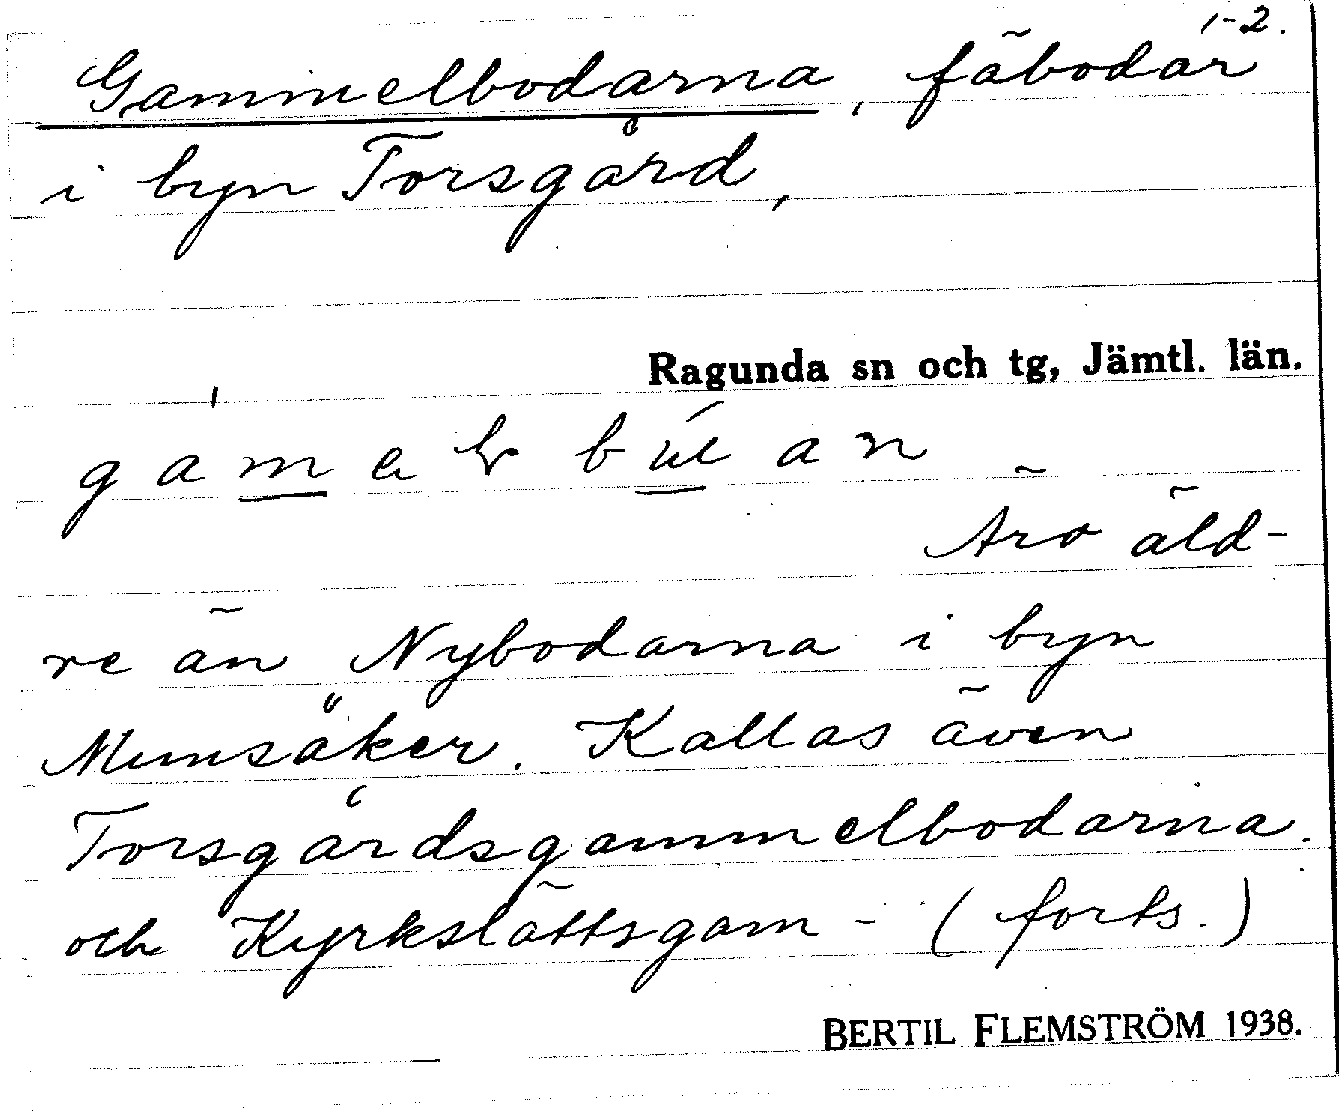 1-2.
Gammelbodarna, fäbodar
i byn Torsgård,
Ragunda sn och tg, Jämtl. län.
Äro äld-
re än Nybodarna i byn
Munsåker. Kallas även
Torsgårdsgammelbodarna.
och Kyrkslättsgam- (forts.)
BERTIL FLEMSTRÖM 1938.